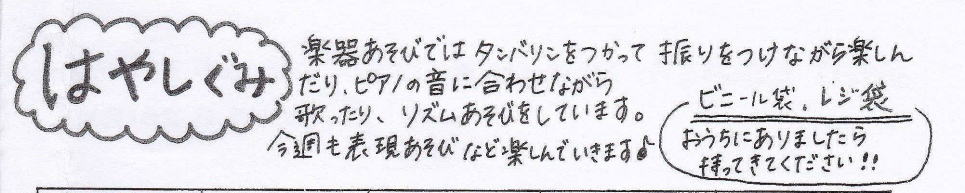 はやしぐみ
楽器あそびではタンバリンをつかって振りをつけながら楽しん
だり、ピアノの音に合わせながら
歌ったり、リズムあそびをしています。
今週も表現あそびなど楽しんでいきます♪
ビニール袋、レジ袋
おうちにありましたら
持ってきてください!!